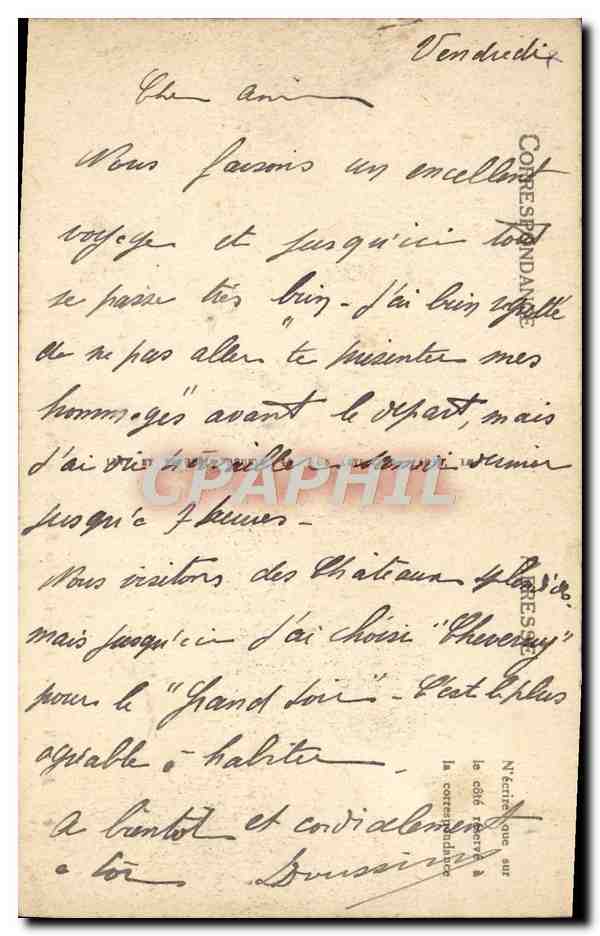 Vendredi
Cher ami
Nous faisons un excellent
voyage et jusqu'ici tout
se passe très bien - J'ai bien regretté
de ne pas aller "te présenter mes
hommages" avant le départ, mais
j'ai dû travailler samedi dernier
jusqu'à 7 heures -
Nous visitons des Châteaux splendides
mais jusqu'ici j'ai choisi "Cheverny"
pour le "Grand Soir" - C'est le plus
agréable à habiter.
A bientôt et cordialement
à toi
CORRESPONDANCE
ADRESSE
N'écrire que sur
le côté réservé à
la correspondance
CPAPHIL